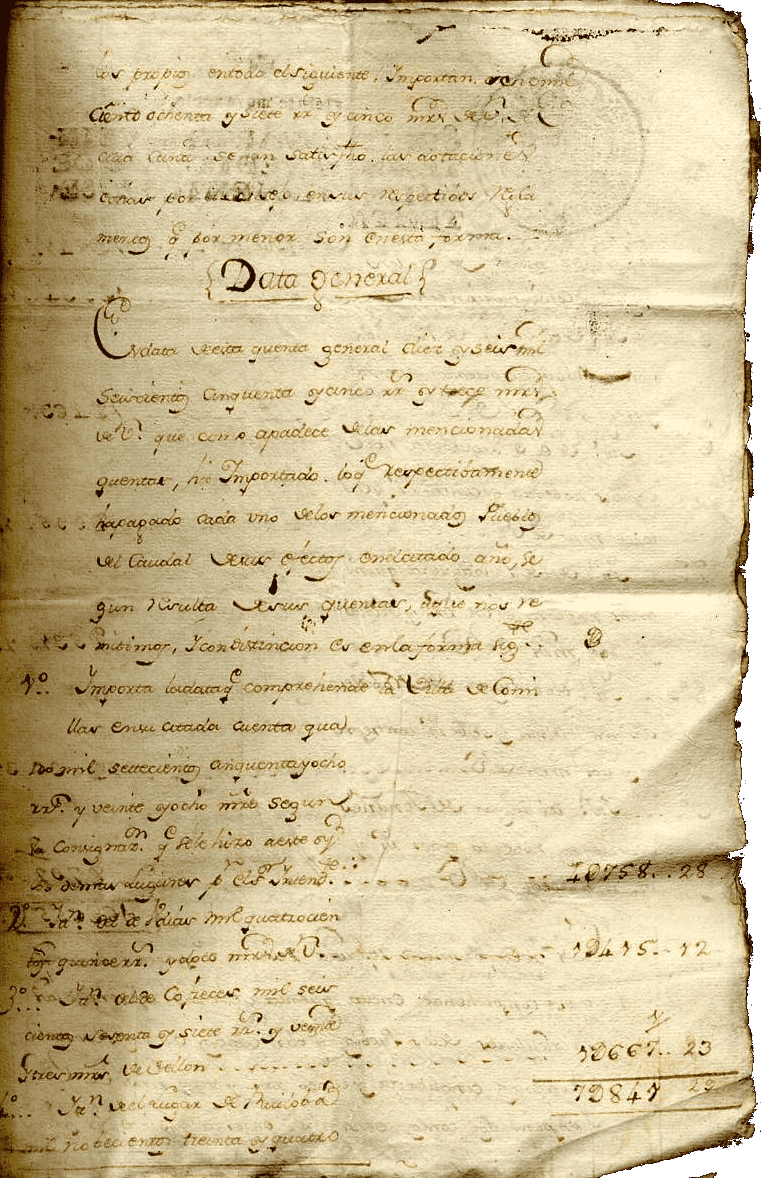 los propios en todo el siguiente, Importan ocho mil
Ciento ochenta y siete rr.s y cinco mrs de V.n
cuia seran satisfho. las dotacion.s
por el Consejo, en sus respectivos Regla
mentos q.e por menor son en esta forma.
{Data general}
En data de esta quenta general Diez y seis mil
Seiscientos cinquenta y cinco rr.s y trece mrs
de V.n que como aparece de las mencionadas
quentas, ha Importado lo q.e respectibamente
ha pagado cada uno de los mencionados Pueblos
del Caudal de sus efectos en el citado año, se
gun resulta de sus quentas, que nos re
mitimos, y con distincion es en la forma sig.te
1.o Importa la data q.e comprehende la Villa de Comi
llas en su citada cuenta qua
tro mil settecientos cinquenta y ocho
rr.s y veinte y ocho mrs segun
la Consignaz.n q.e se le hizo a este y
los demas lugares p.r el S.r Intend.te 4D758.. 28
2.o It.n de Rdias mil quatrocien
tos quince rr.s y doce mrs de V.n 1D415.. 12
3.o It.n el de Cofreces mil seis
cientos sesenta y siete rr.s y veinte
y tres mrs de Vellon 1D667.. 23
7D841 29
4.o It.n el lugar de Ruiloba
mil nobecientos treinta y quatro